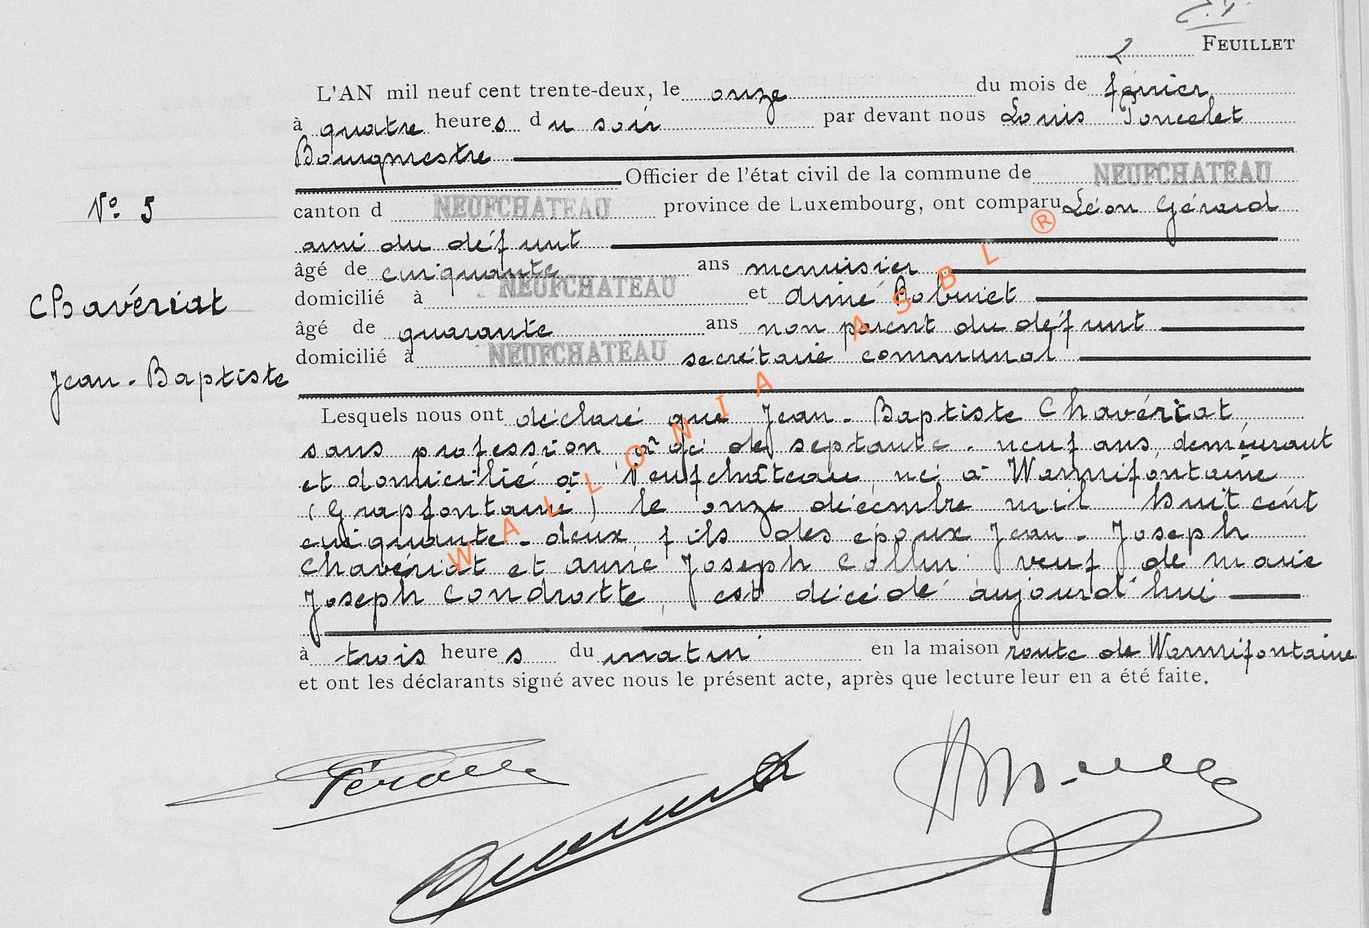 2 FEUILLET
L'AN mil neuf cent trente-deux, le onze du mois de février
à quatre heures du soir par devant nous Louis Poncelet
Bourgmestre
Officier de l'état civil de la commune de NEUFCHATEAU
N° 5
canton d NEUFCHATEAU province de Luxembourg, ont comparu Léon Gérard
ami du défunt
âgé de cinquante ans menuisier
domicilié à NEUFCHATEAU et Aimé Robinet
Chavériat
âgé de quarante ans non parent du défunt
domicilié à NEUFCHATEAU secrétaire communal
Jean-Baptiste
Lesquels nous ont déclaré que Jean-Baptiste Chavériat
sans profession âgé de septante-neuf ans, demeurant
et domicilié à Neufchâteau né à Warmifontaine
(Grapfontaine) le onze décembre mil huit cent
cinquante-deux, fils des époux Jean-Joseph
Chavériat et Anne Joseph Collin veuf de Marie
Joseph Condrotte, est décédé aujourd'hui
à trois heures du matin en la maison route de Warmifontaine
et ont les déclarants signé avec nous le présent acte, après que lecture leur en a été faite.
WALLONIA ASBL ®